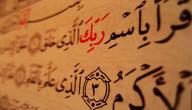 قْرَأْ بِاسْمِ رَبِّكَ الَّذِي خَلَقَ
الْأَكْرَمُ ٣ الَّذِي عَلَّمَ